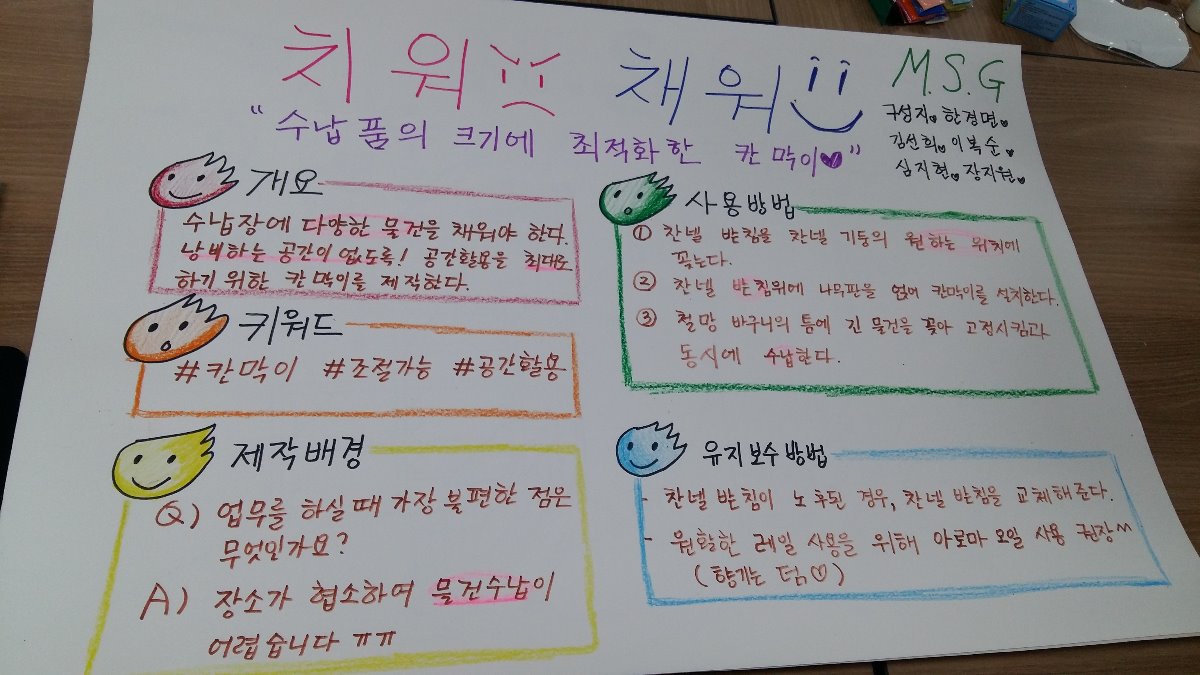 치워 채워
M.S.G
"수납품의 크기에 최적화한 칸막이♥"
구성지♥ 한경면♥
김선희♥ 이복순♥
심지현♥ 장지원♥
개요
수납장에 다양한 물건을 채워야 한다.
낭비하는 공간이 없도록! 공간활용을 최대로
하기 위한 칸막이를 제작한다.
키워드
#칸막이 #조절가능 #공간활용
제작배경
Q) 업무를 하실 때 가장 불편한 점은
무엇인가요?
A) 장소가 협소하여 물건수납이
어렵습니다 ㅠㅠ
사용방법
① 찬넬 받침을 찬넬 기둥의 원하는 위치에
꽂는다.
② 찬넬 받침위에 나무판을 얹어 칸막이를 설치한다.
③ 철망 바구니의 틈에 긴 물건을 꽂아 고정시킴과
동시에 수납한다.
유지보수방법
- 찬넬 받침이 노후된 경우, 찬넬 받침을 교체해준다.
- 원활한 레일 사용을 위해 아로마 오일 사용 권장^^
(향기는 덤♡)